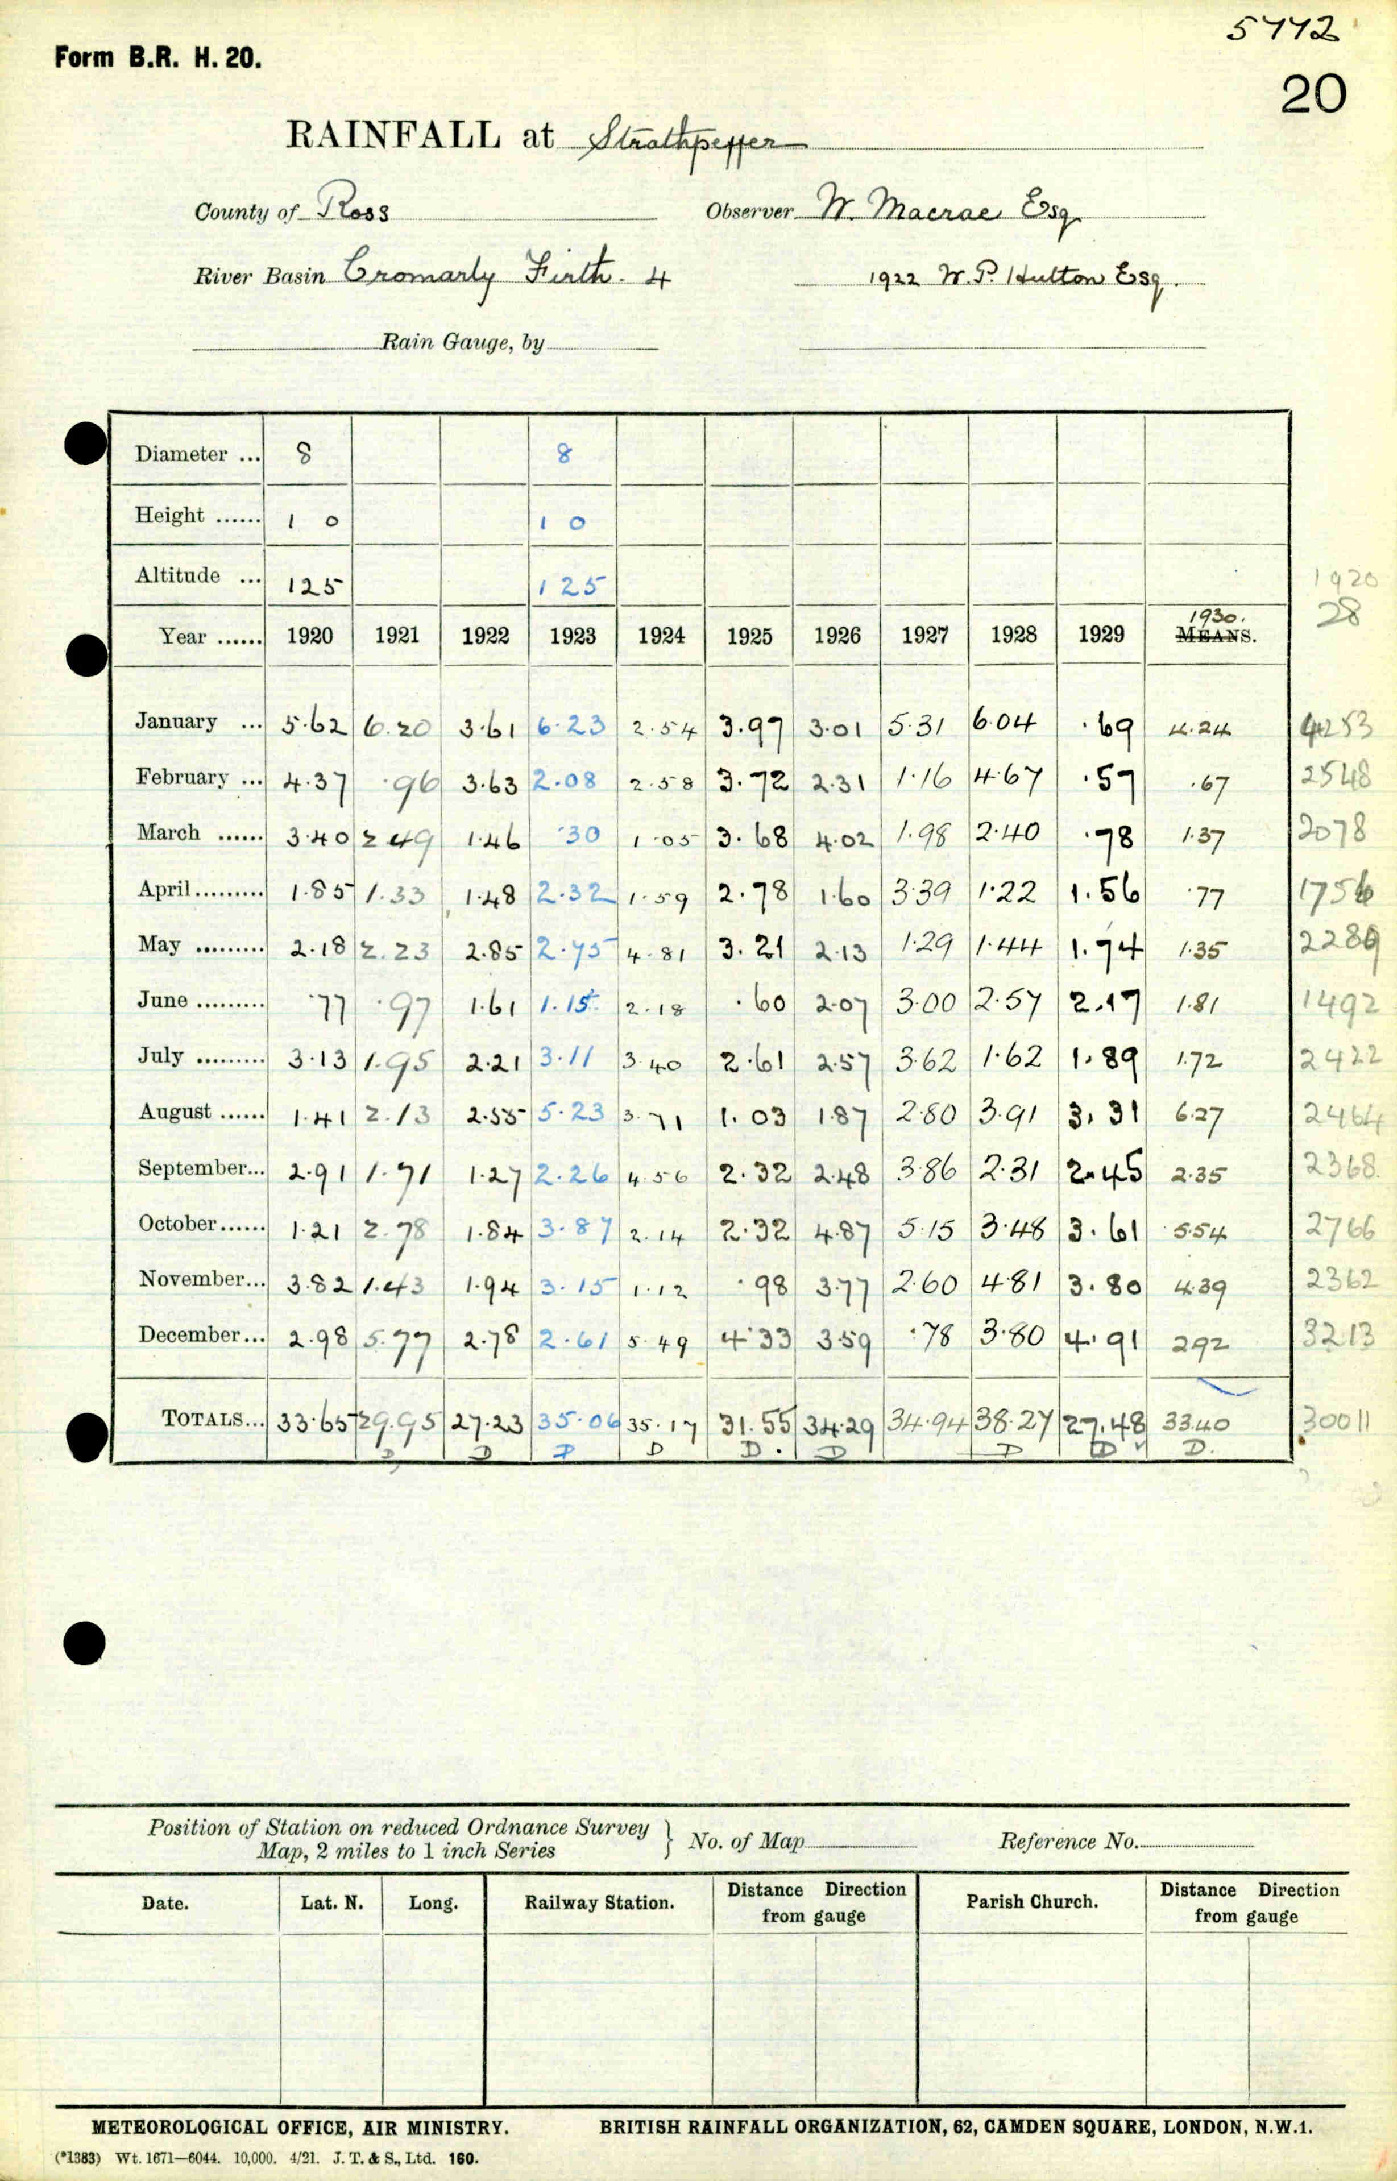 5772
Form B.R. H. 20.
20
RAINFALL at Strathpeffer
County of Ross Observer W. Macrae Esq
River Basin Cromarty Firth. 4 1922 W. P. Hutton Esq.
Rain Gauge, by
Diameter ... 8 8
Height ...... 1 0 1 0
Altitude ... 125 125
1920
28
1930.
Year ...... 1920 1921 1922 1923 1924 1925 1926 1927 1928 1929 MEANS.
January ... 5.62 6.20 3.61 6.23 2.54 3.97 3.01 5.31 6.04 .69 4.24 4253
February ... 4.37 .96 3.63 2.08 2.58 3.72 2.31 1.16 4.67 .57 .67 2548
March ...... 3.40 2.49 1.46 .30 1.05 3.68 4.02 1.98 2.40 .78 1.37 2078
April......... 1.85 1.33 1.48 2.32 1.59 2.78 1.60 3.39 1.22 1.56 .77 1756
May ......... 2.18 2.23 2.85 2.75 4.81 3.21 2.13 1.29 1.44 1.74 1.35 2289
June ......... .77 .97 1.61 1.15 2.18 .60 2.07 3.00 2.57 2.17 1.81 1492
July ......... 3.13 1.95 2.21 3.11 3.40 2.61 2.57 3.62 1.62 1.89 1.72 2422
August ...... 1.41 2.13 2.55 5.23 3.71 1.03 1.87 2.80 3.91 3.31 6.27 2464
September... 2.91 1.71 1.27 2.26 4.56 2.32 2.48 3.86 2.31 2.45 2.35 2368
October...... 1.21 2.78 1.84 3.87 2.14 2.32 4.87 5.15 3.48 3.61 5.54 2766
November... 3.82 1.43 1.94 3.15 1.12 .98 3.77 2.60 4.81 3.80 4.39 2362
December... 2.98 5.77 2.78 2.61 5.49 4.33 3.59 .78 3.80 4.91 2.92 3213
TOTALS... 33.65 29.95 27.23 35.06 35.17 31.55 34.29 34.94 38.27 27.48 33.40 30011
D D D D D. D D D D.
Position of Station on reduced Ordnance Survey
Map, 2 miles to 1 inch Series } No. of Map Reference No.
Date. Lat. N. Long. Railway Station. Distance Direction from gauge Parish Church. Distance Direction from gauge
METEOROLOGICAL OFFICE, AIR MINISTRY. BRITISH RAINFALL ORGANIZATION, 62, CAMDEN SQUARE, LONDON, N.W.1.
(*1383) Wt. 1671—6044. 10,000. 4/21. J. T. & S., Ltd. 160.